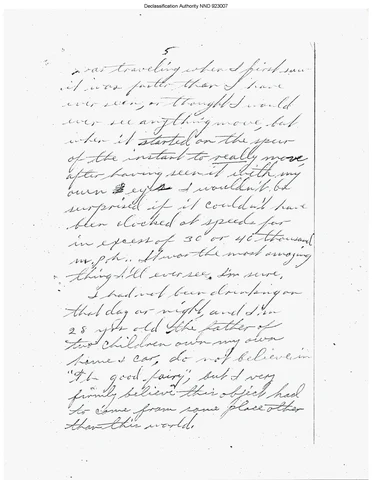 Declassification Authority NND 923007
5
was traveling when I first saw
it was faster than I have
ever seen, or thought I would
ever see anything move, but
when it started on the spur
of the instant to really move
after having seen it with my
own eyes I wouldn't be
surprised if it couldn't have
been clocked at speeds far
in excess of 30 or 40 thousand
m.p.h.. It was the most amazing
thing I'll ever see, I'm sure.
I had not been drinking on
that day or night, and I'm
28 yrs old the father of
two children own my own
home & car, do not believe in
"the good fairy", but I very
firmly believe this object had
to come from some place other
than this world.